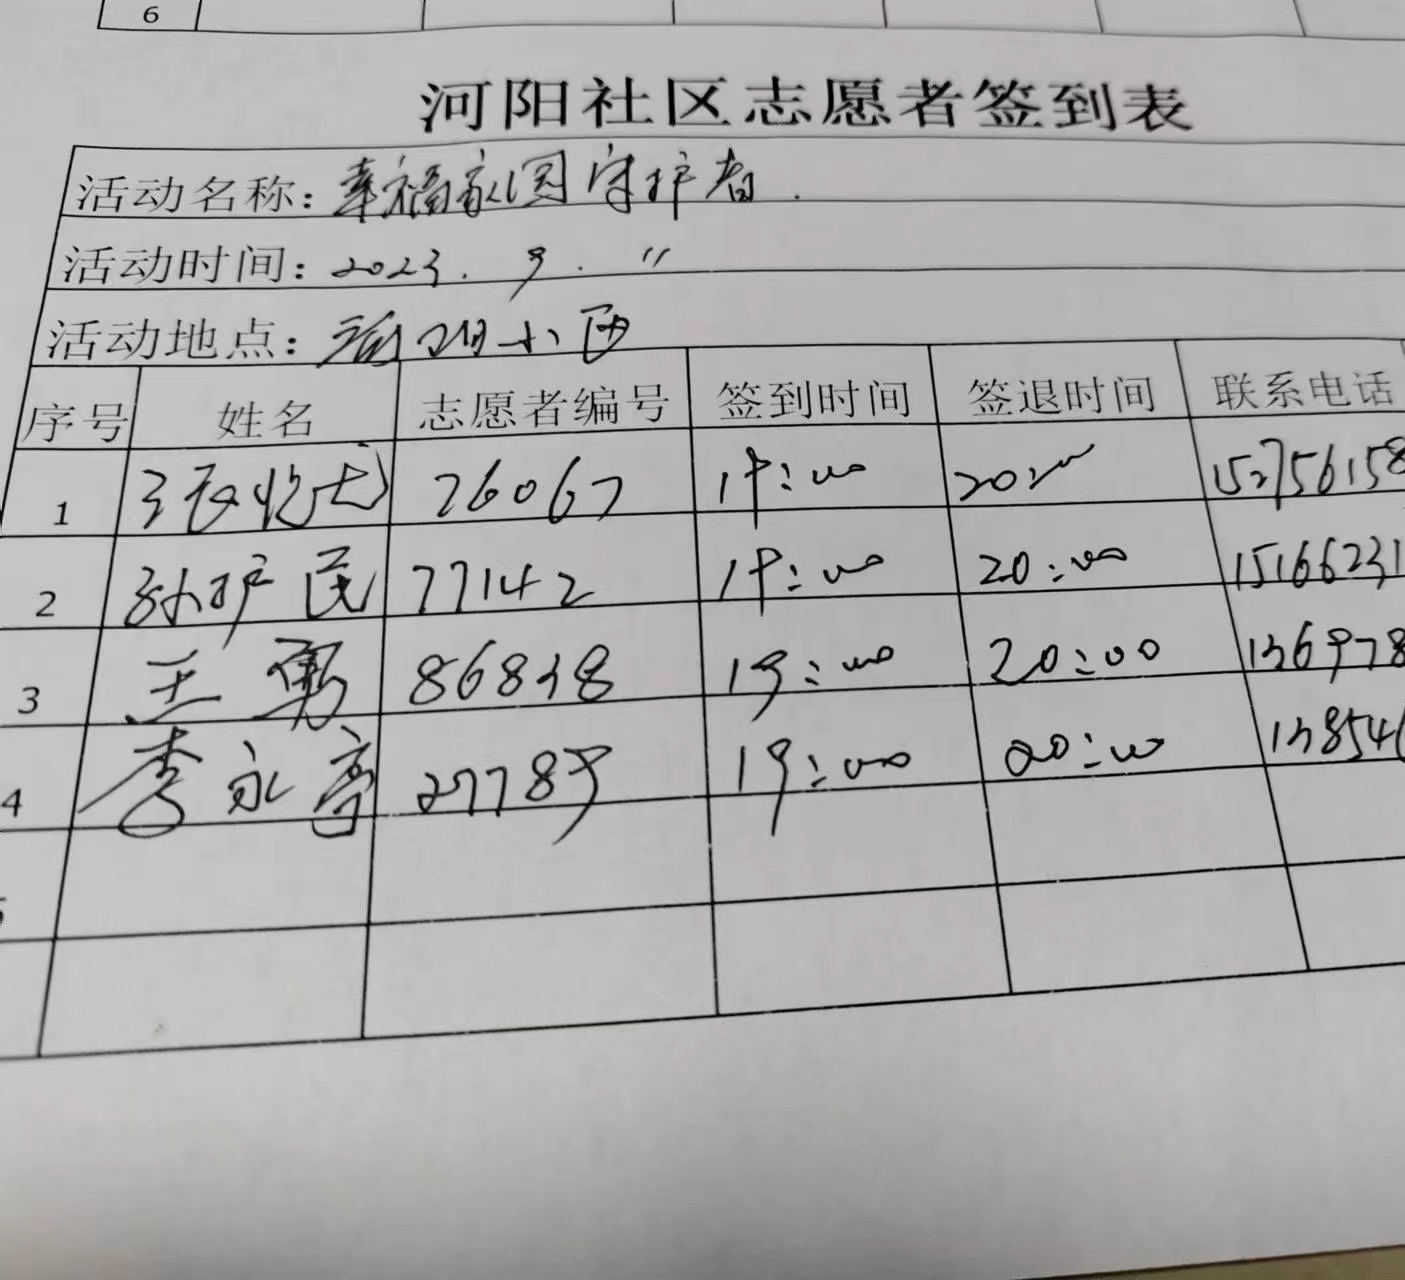 6
河阳社区志愿者签到表
活动名称：幸福家园守护者.
活动时间：2023. 9. 11
活动地点：小区
序号 姓名 志愿者编号 签到时间 签退时间 联系电话
1 张 76067 19:00 20:00 152756158
2 孙护民 77142 19:00 20:00 15166231
3 王勇 86838 19:00 20:00 136978
4 李永亭 27789 19:00 20:00 138546
5